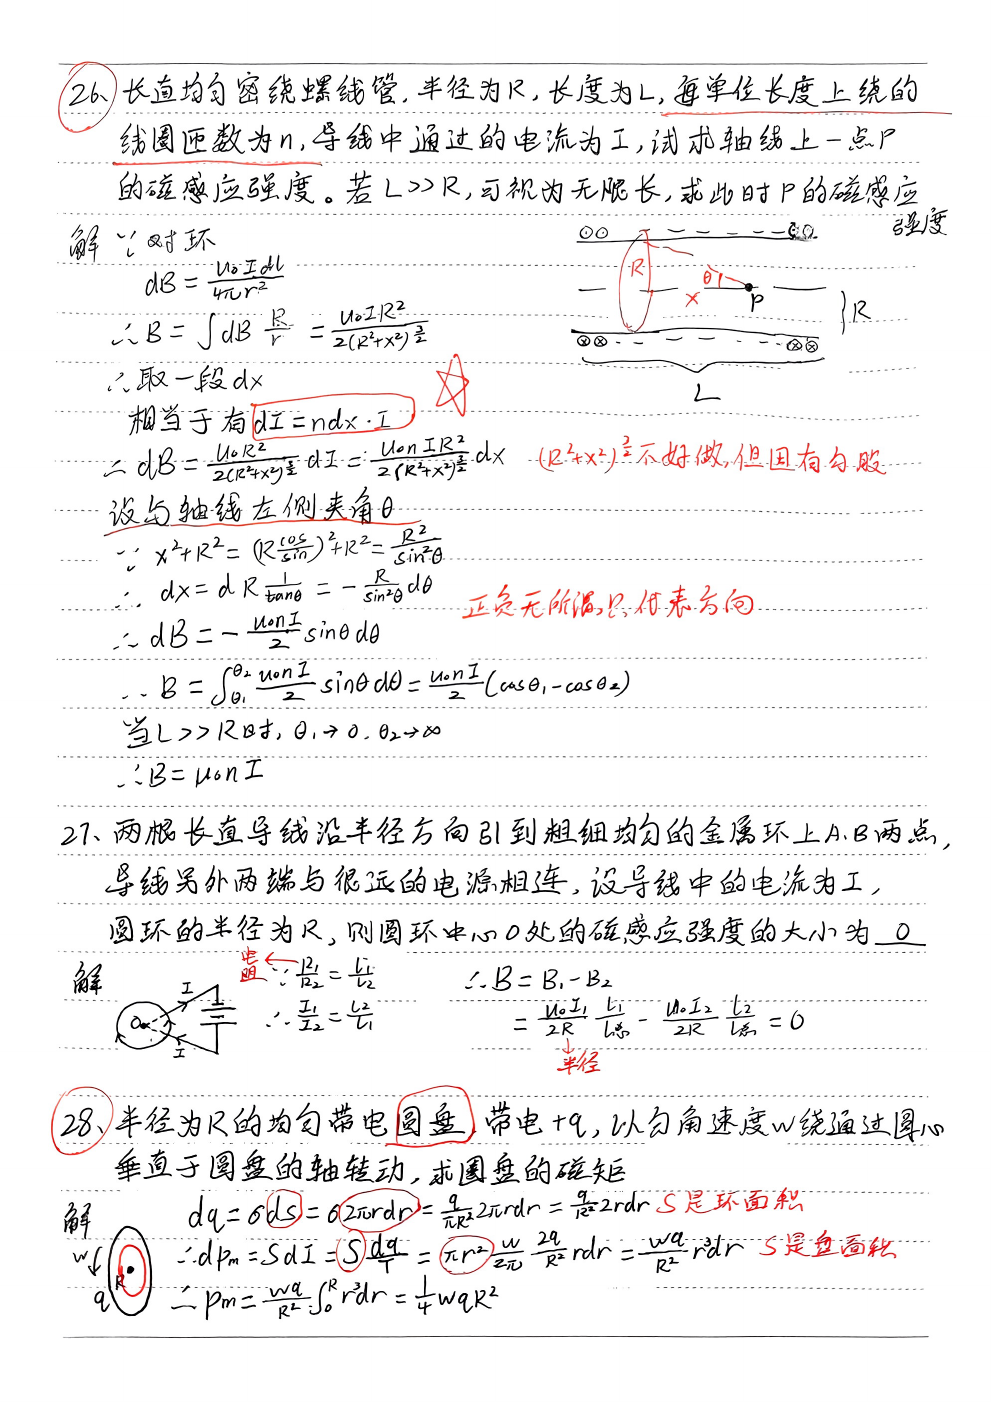 26、长直均匀密绕螺线管,半径为R,长度为L,每单位长度上绕的
线圈匝数为n,导线中通过的电流为I,试求轴线上一点P
的磁感应强度。若L>>R,可视为无限长,求此时P的磁感应
强度
解 ∵对环
dB = μ₀Idl/4πr²
∴B = ∫dB R/r = μ₀IR²/2(R²+x²)^(3/2)
∴取一段dx
相当于有dI=ndx·I
∴dB = μ₀R²/2(R²+x²)^(3/2) dI = μ₀nIR²/2(R²+x²)^(3/2) dx
(R²+x²)^(3/2)不好做,但因有勾股
设与轴线左侧夹角θ
∵ x²+R² = (R cos/sin)²+R² = R²/sin²θ
∴ dx = dR 1/tanθ = - R/sin²θ dθ
正负无所谓,只代表方向
∴ dB = - μ₀nI/2 sinθdθ
∴ B = ∫_θ₁^θ₂ μ₀nI/2 sinθdθ = μ₀nI/2 (cosθ₁-cosθ₂)
当L>>R时,θ₁→0.θ₂→∞
∴B = μ₀nI
R
θ
x
P
R
L
27、两根长直导线沿半径方向引到粗细均匀的金属环上A.B两点,
导线另外两端与很远的电源相连,设导线中的电流为I,
圆环的半径为R,则圆环中心O处的磁感应强度的大小为 0
解
I
O
I
电阻
∵ R₁/R₂ = L₁/L₂
∴ I₁/I₂ = L₂/L₁
∴B = B₁-B₂
= μ₀I₁/2R L₁/L总 - μ₀I₂/2R L₂/L总 = 0
半径
28、半径为R的均匀带电圆盘,带电+q,以匀角速度w绕通过圆心
垂直于圆盘的轴转动,求圆盘的磁矩
解
w
R
q
dq = σds = σ2πrdr = q/πR² 2πrdr = q/R² 2rdr S是环面积
∴dPm = SdI = S dq/T = πr² w/2π 2q/R² rdr = wq/R² r³dr S是盘面积
∴ Pm = wq/R² ∫₀^R r³dr = 1/4 wqR²